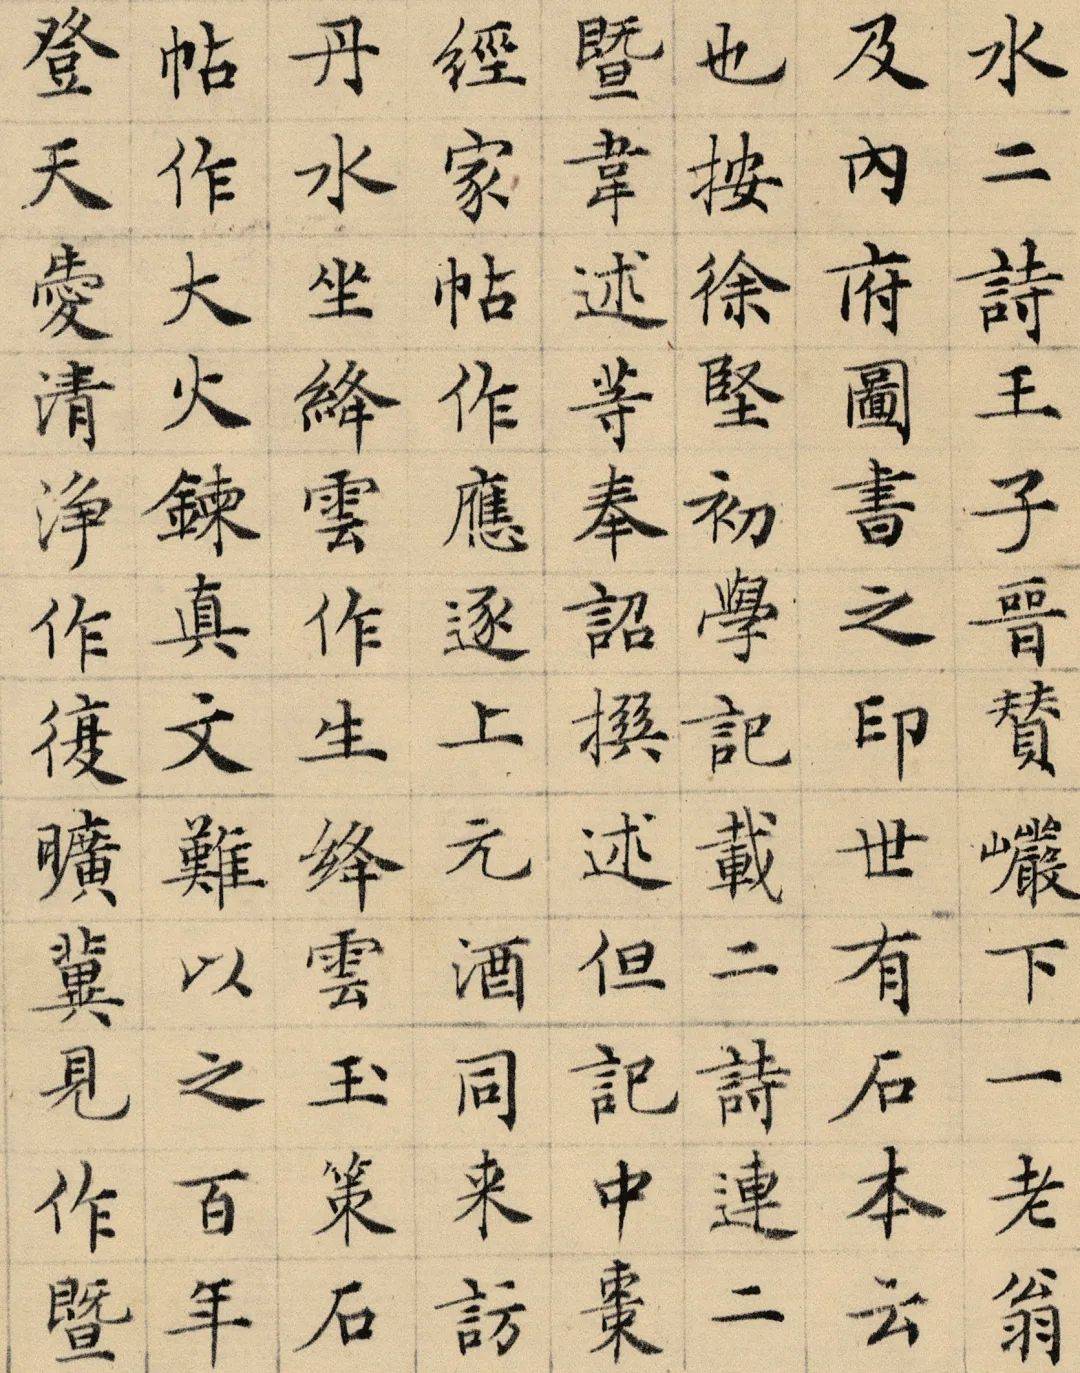 水二詩王子晉贊巖下一老翁
及內府圖書之印世有石本云
也按徐堅初學記載二詩連二
暨韋述等奉詔撰述但記中棗
經家帖作應逐上元酒同来訪
丹水坐絳雲作生絳雲玉策石
帖作大火鍊真文難以之百年
登天愛清浄作復曠冀見作暨